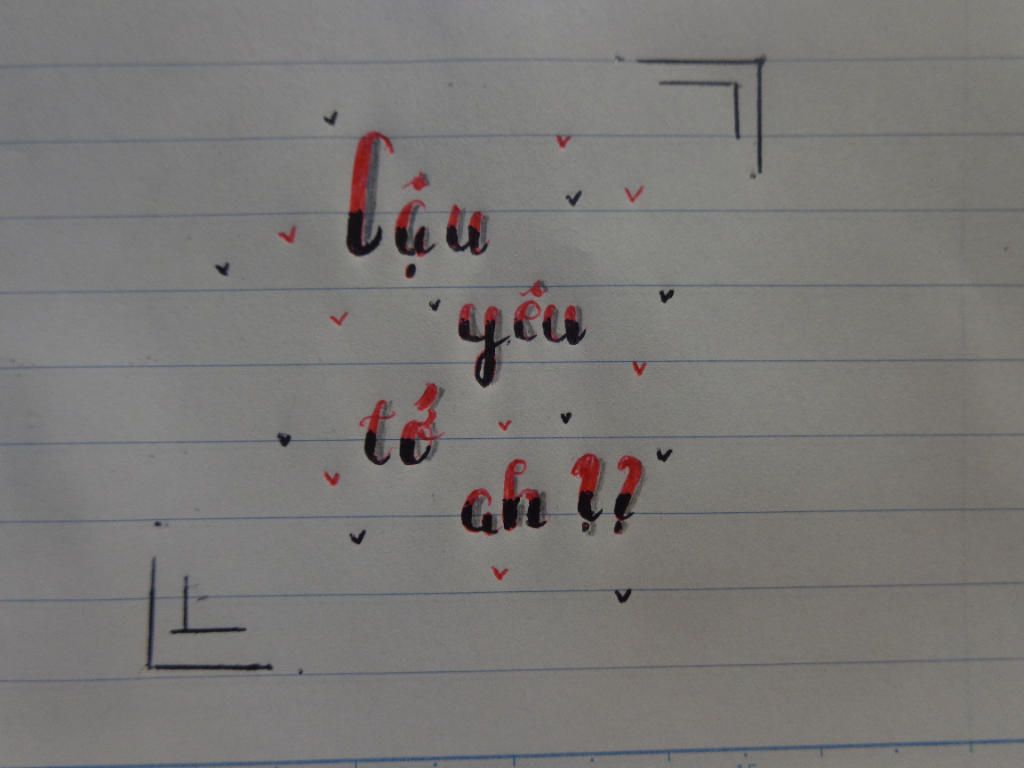 Cậu
yêu
tớ
ah??